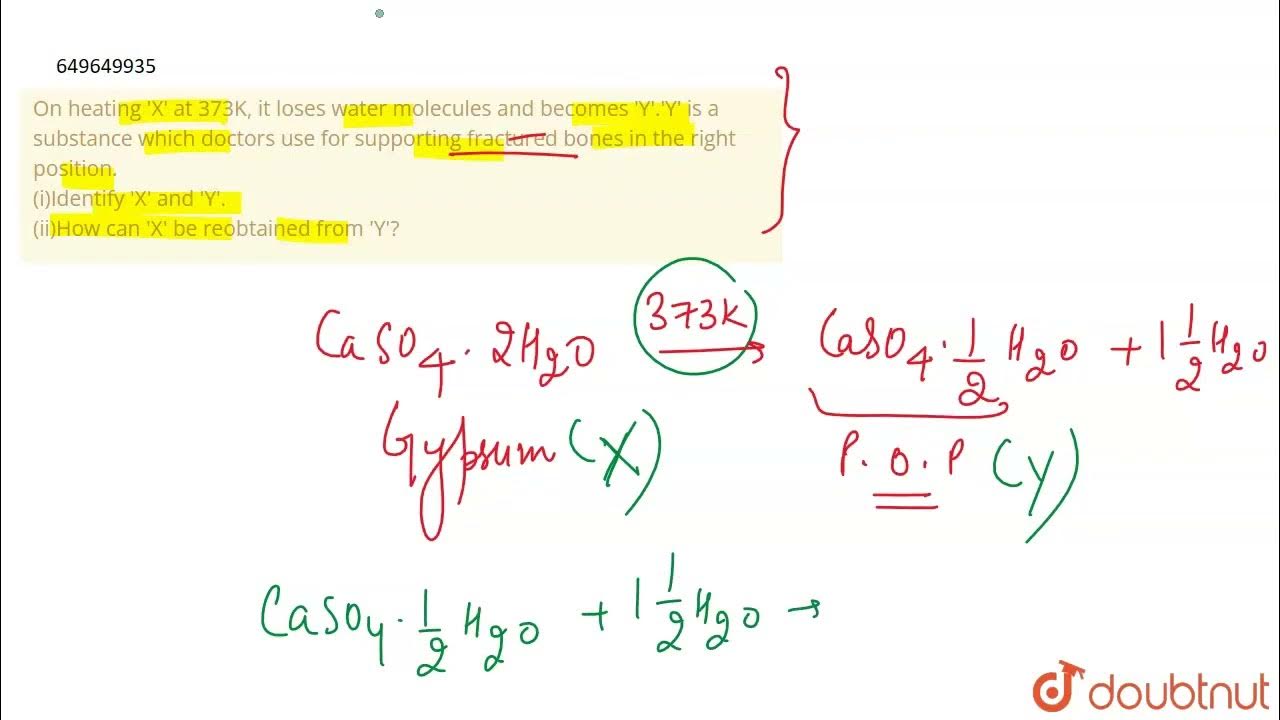 649649935
On heating 'X' at 373K, it loses water molecules and becomes 'Y'.'Y' is a
substance which doctors use for supporting fractured bones in the right
position.
(i)Identify 'X' and 'Y'.
(ii)How can 'X' be reobtained from 'Y'?
CaSO4·2H2O 373K → CaSO4·1/2 H2O + 1 1/2 H2O
Gypsum (X) P.O.P (Y)
CaSO4·1/2 H2O + 1 1/2 H2O →
doubtnut